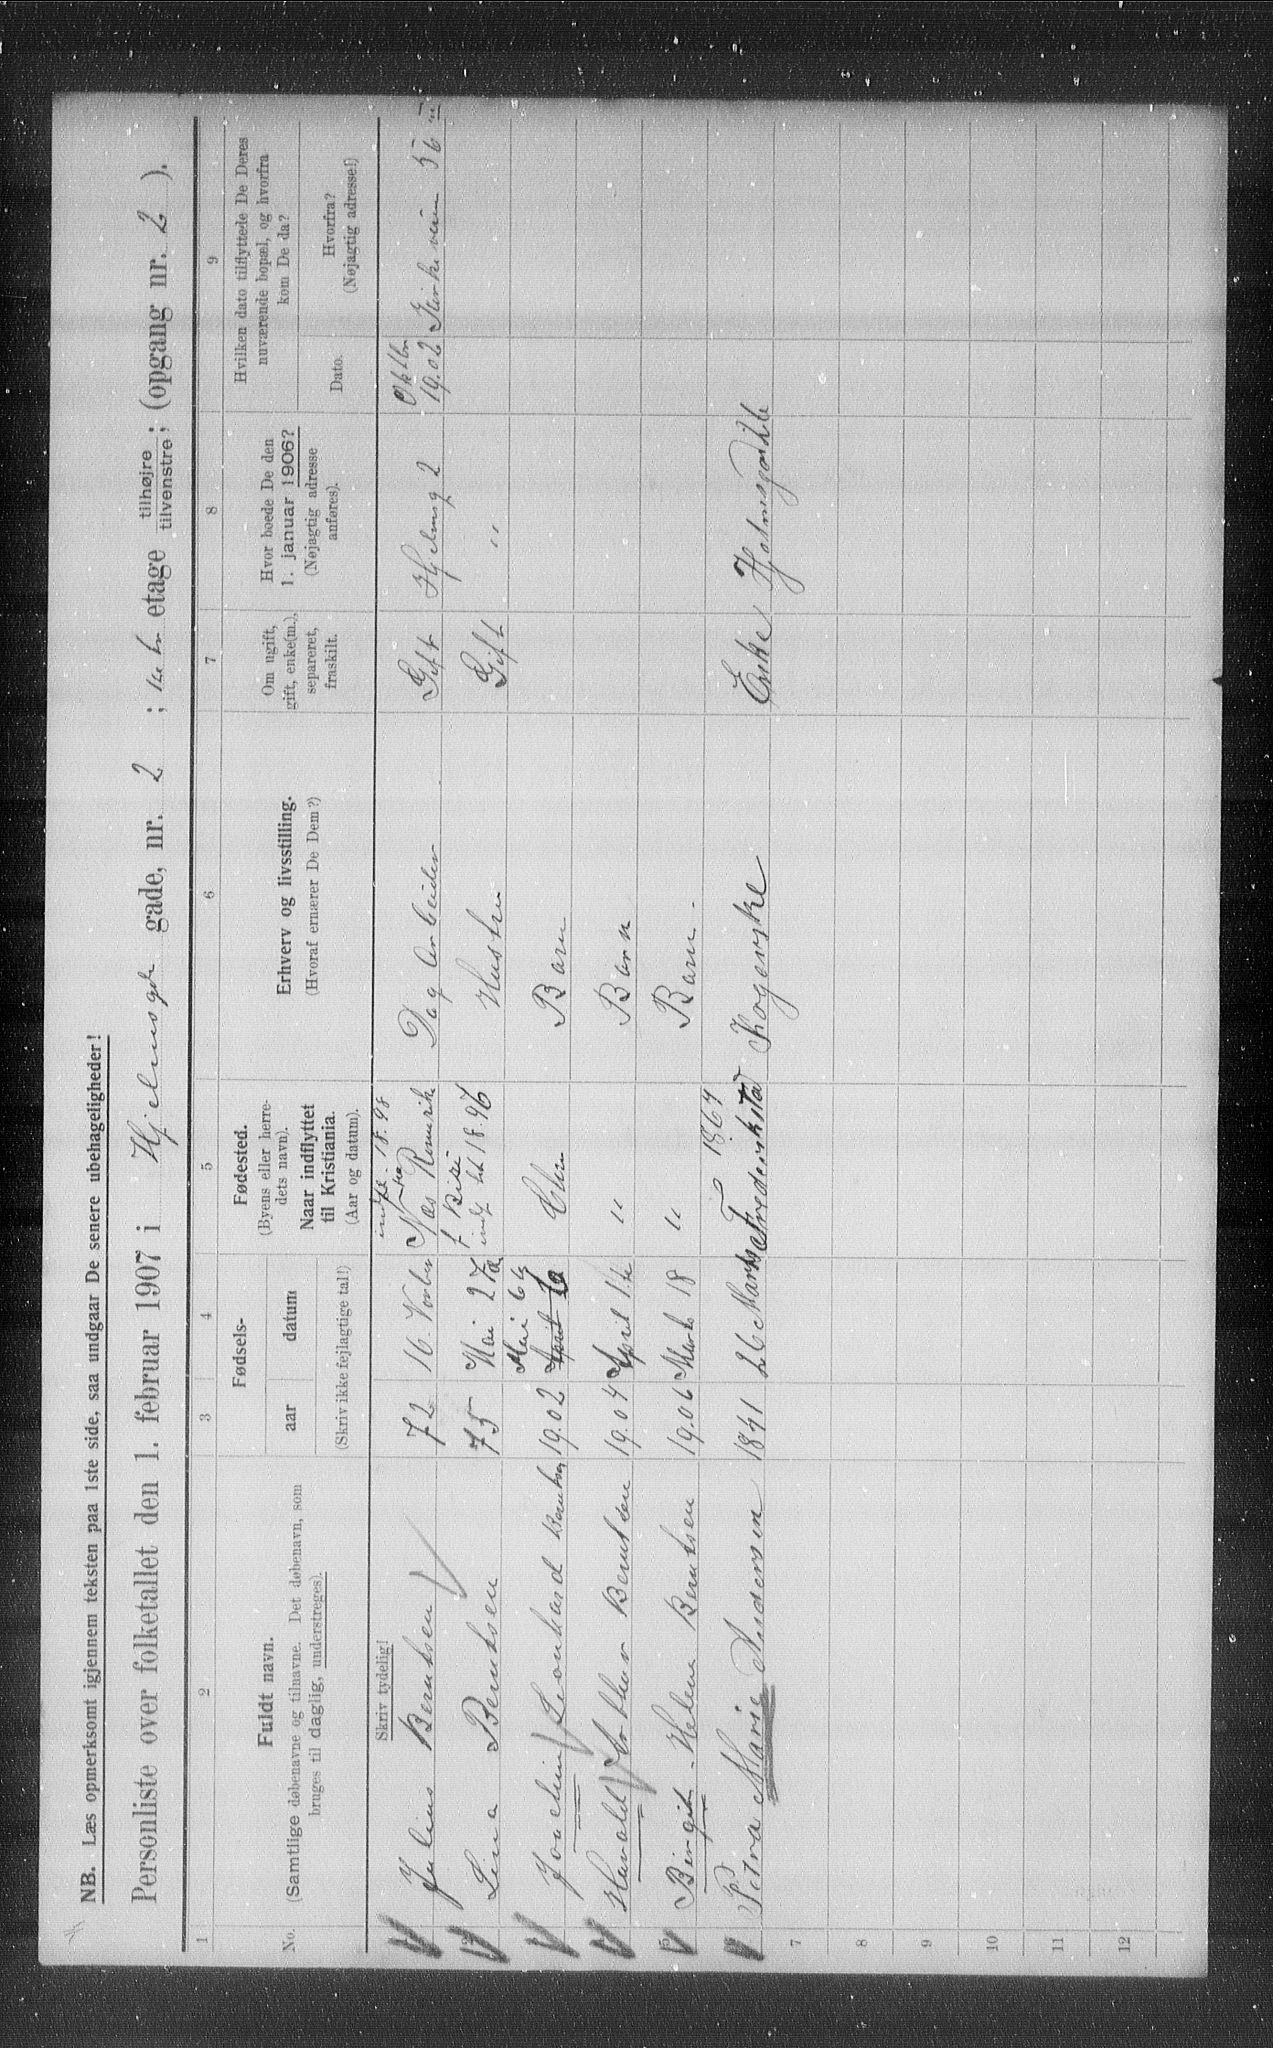 NB. Læs opmerksomt igjennem teksten paa 1ste side, saa undgaar De senere ubehageligheder!
Personliste over folketallet den 1. februar 1907 i Hjelmsgde gade, nr. 2 ; 1ste etage tilhøjre tilvenstre ; (opgang nr. 2 ).
1 2 3 4 5 6 7 8 9
No.
Fuldt navn.
(Samtlige døbenavne og tilnavne. Det døbenavn, som
bruges til daglig, understreges).
Fødsels-
aar datum
(Skriv ikke fejlagtige tal!)
Fødested.
(Byens eller herre-
dets navn).
Naar indflyttet
til Kristiania.
(Aar og datum).
Erhverv og livsstilling.
(Hvoraf ernærer De Dem?)
Om ugift,
gift, enke(m.),
separeret,
fraskilt.
Hvor boede De den
1. januar 1906?
(Nøjagtig adresse
anføres).
Hvilken dato tilflyttede De Deres
nuværende bopæl, og hvorfra
kom De da?
Dato.
Hvorfra?
(Nøjagtig adresse!)
Skriv tydelig!
Julius Berntsen 72 16. Novbr indfl. 18.98 Næs Romerike Dag Arbeider Gift Hjelmsg 2 Oktbr 19.02 Kirkeveien 56
2 Lina Berntsen 75 Mai 27 indf til 18.96 Hustru Gift "
Joachim Leonhard Berntsen 19.02 April Mai 6 Chra Barn
Harald Arthur Berntsen 19.04 April " Barn
5 Birgit Helene Berntsen 19.06 Marts 18 " Barn.
Petra Marie Andersen 1841 26 Marts Frederikstad 1864 Kogerske Enke Hjelmsgd 2
7
8
9
10
11
12